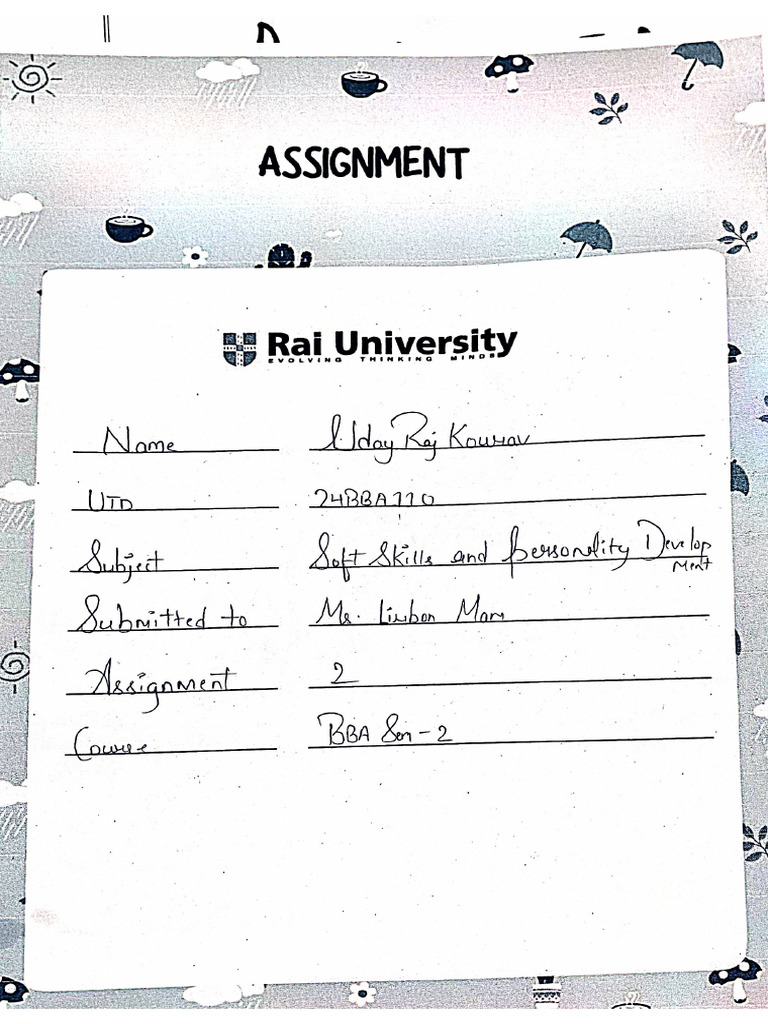 ASSIGNMENT
Rai University
EVOLVING THINKING MINDS
Name Uday Raj Kourav
UID 24BBA110
Subject Soft Skills and Personality Develop
ment
Submitted to Ms. Mam
Assignment 2
Course BBA Sem-2